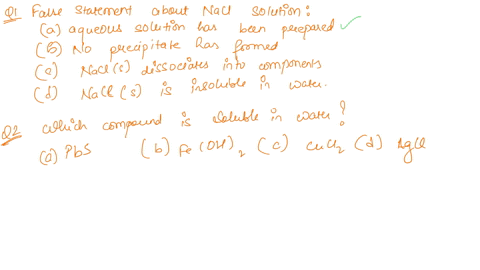 Q1 False Statement about NaCl solution:
(a) aqueous solution has been prepared
(b) No precipitate has formed
(c) NaCl(s) dissociates into components
(d) NaCl(s) is insoluble in water.
Q2 Which compound is soluble in water?
(a) PbS (b) Fe(OH)2 (c) CuCl2 (d) AgCl